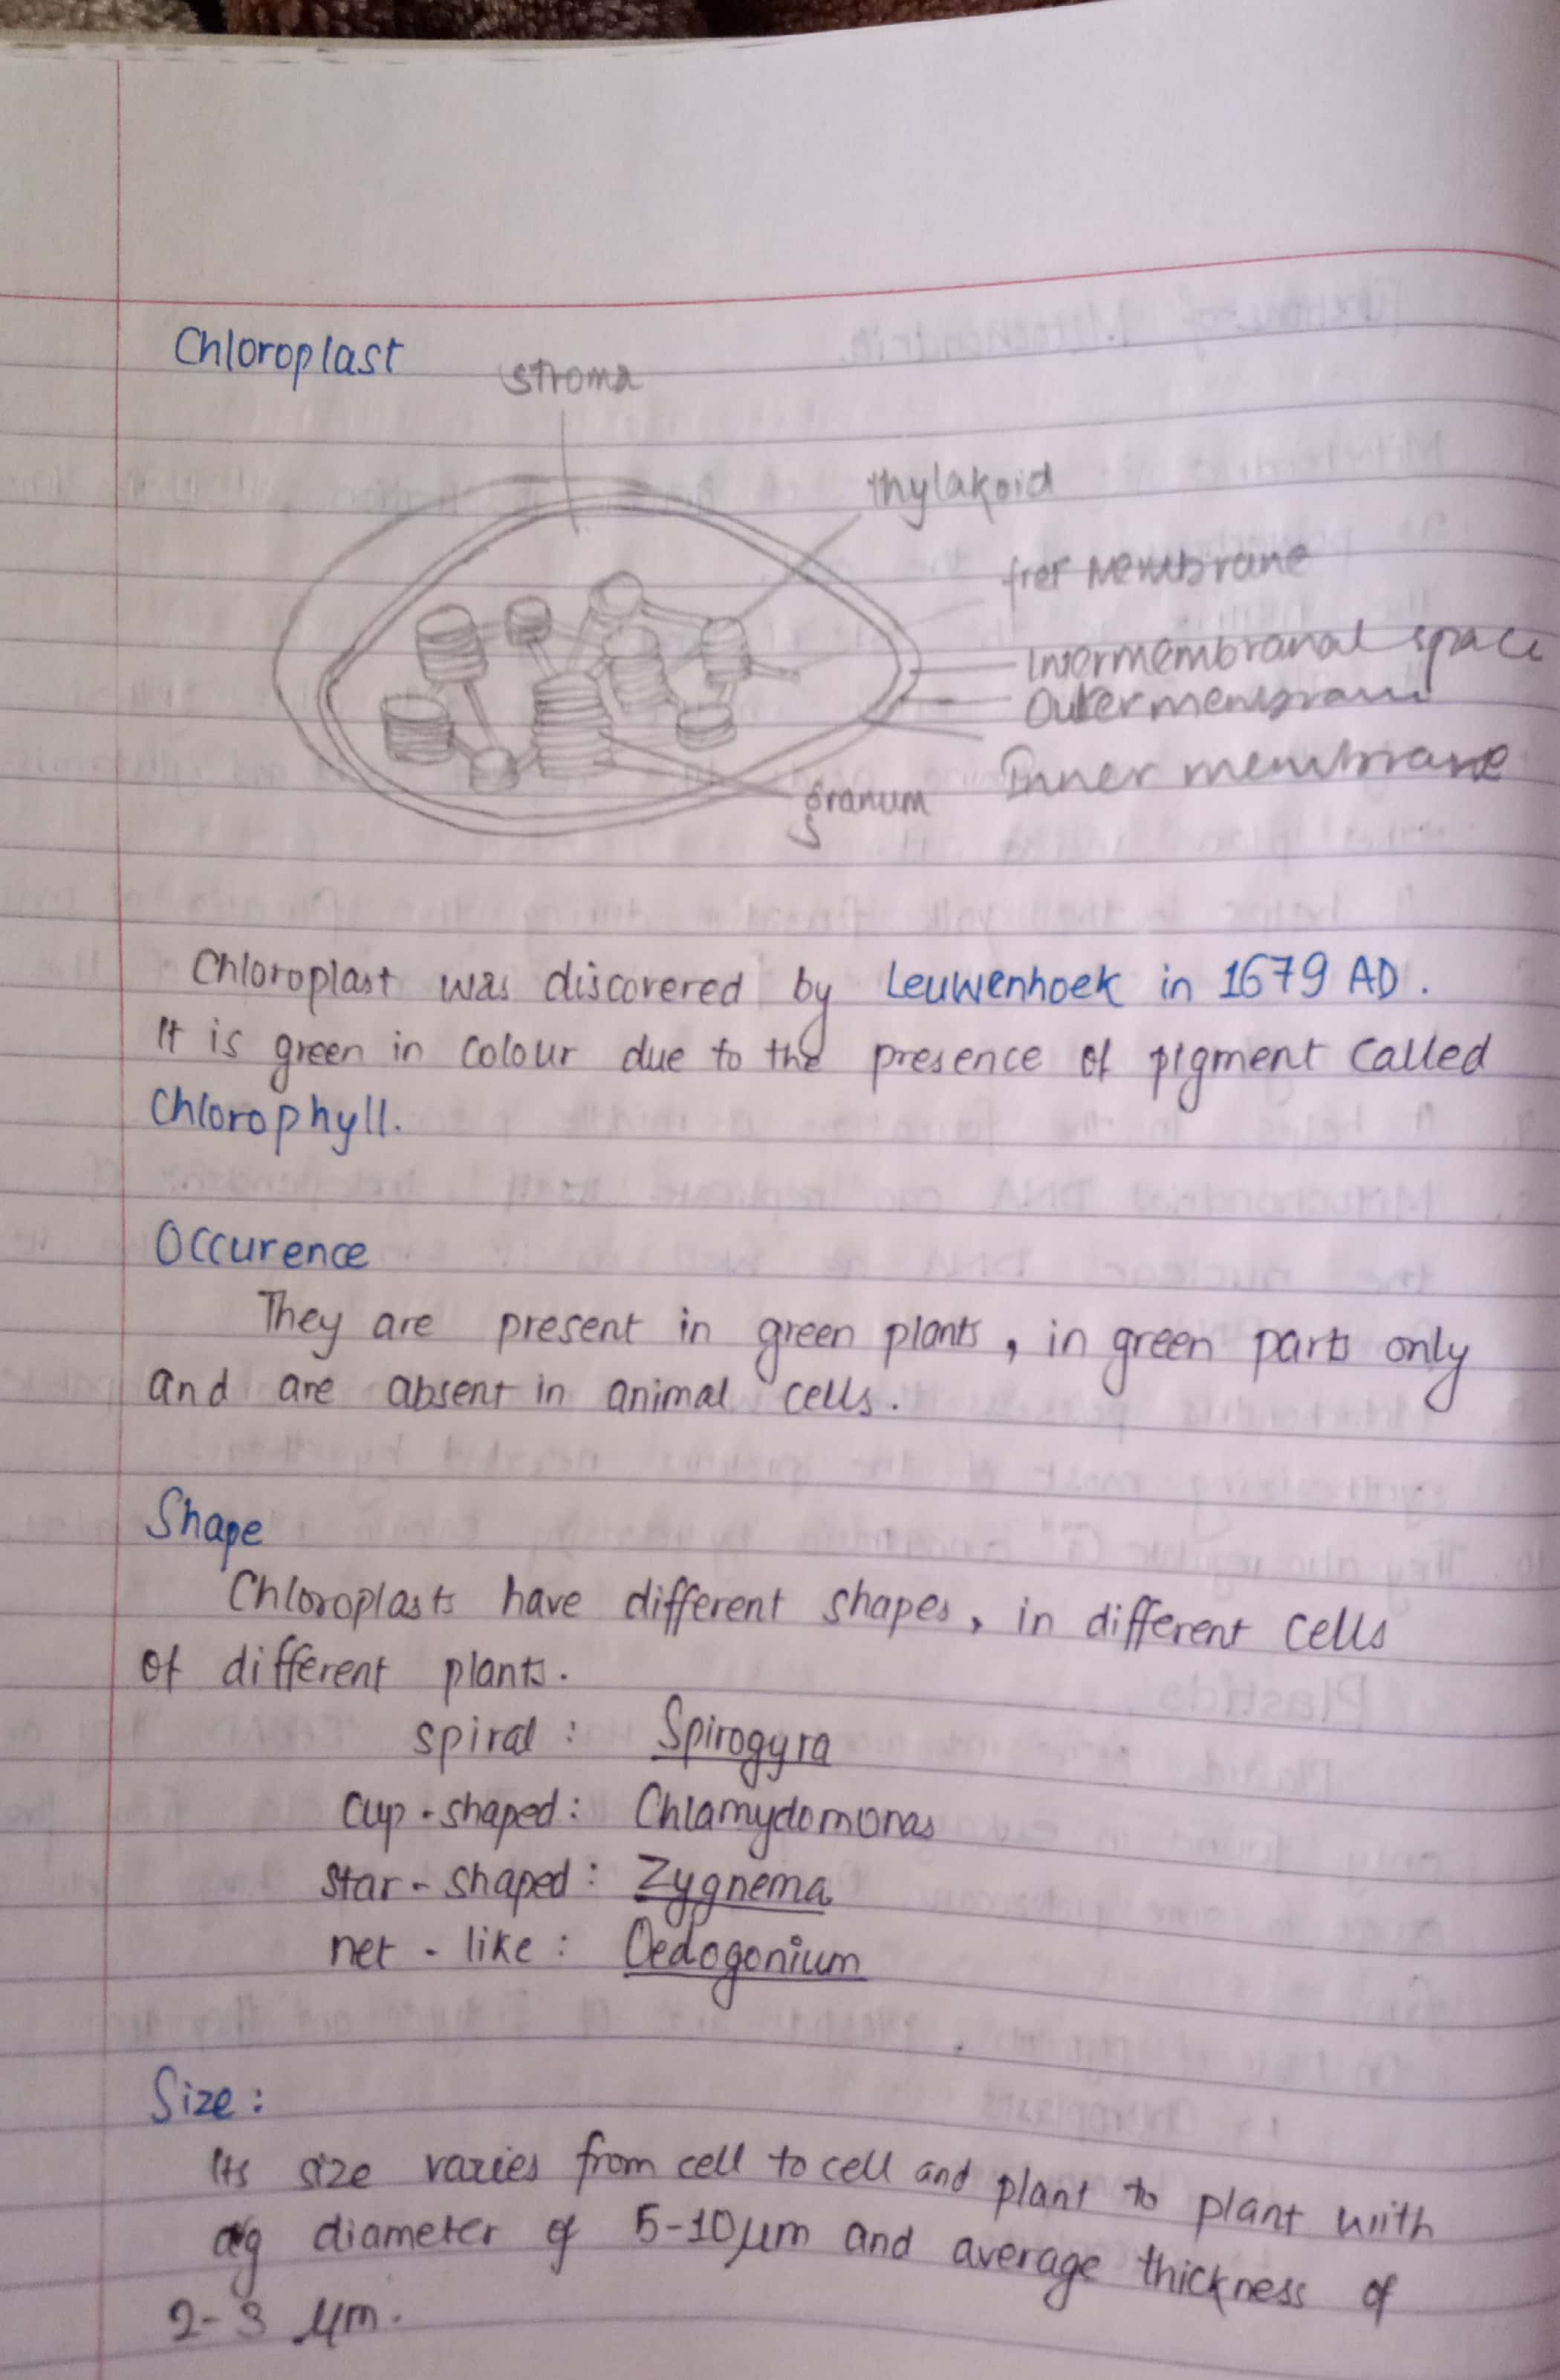 Chloroplast
stroma
thylakoid
fret Membrane
Intermembranal space
Outer membrane
Inner membrane
granum
Chloroplast was discovered by Leuwenhoek in 1679 AD.
It is green in colour due to the presence of pigment called
Chlorophyll.
Occurence
They are present in green plants, in green parts only
and are absent in animal cells.
Shape
Chloroplasts have different shapes, in different cells
of different plants.
spiral : Spirogyra
cup-shaped : Chlamydomonas
star-shaped : Zygnema
net-like : Oedogonium
Size :
Its size varies from cell to cell and plant to plant with
diameter of 5-10 μm and average thickness of
2-3 μm.